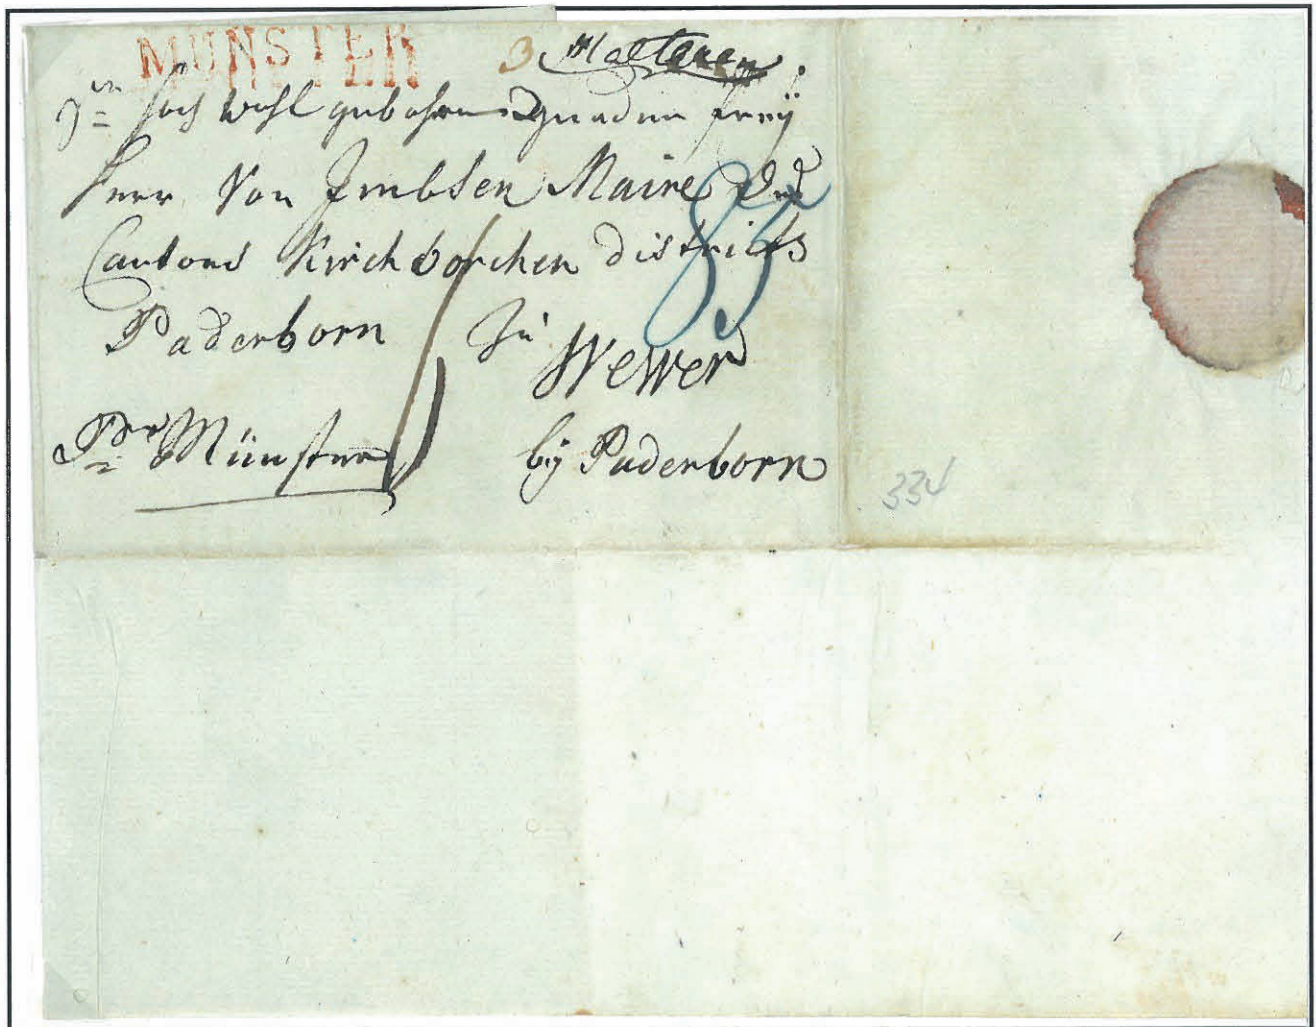 MÜNSTER
3 Halteren
hoch wohl gebohrne gnaden freÿ
Herr Von Imbsen Maire des
Cantons Kirchborchen districts
Paderborn Zu
Wewer
Per Münster
bÿ Paderborn
85
334